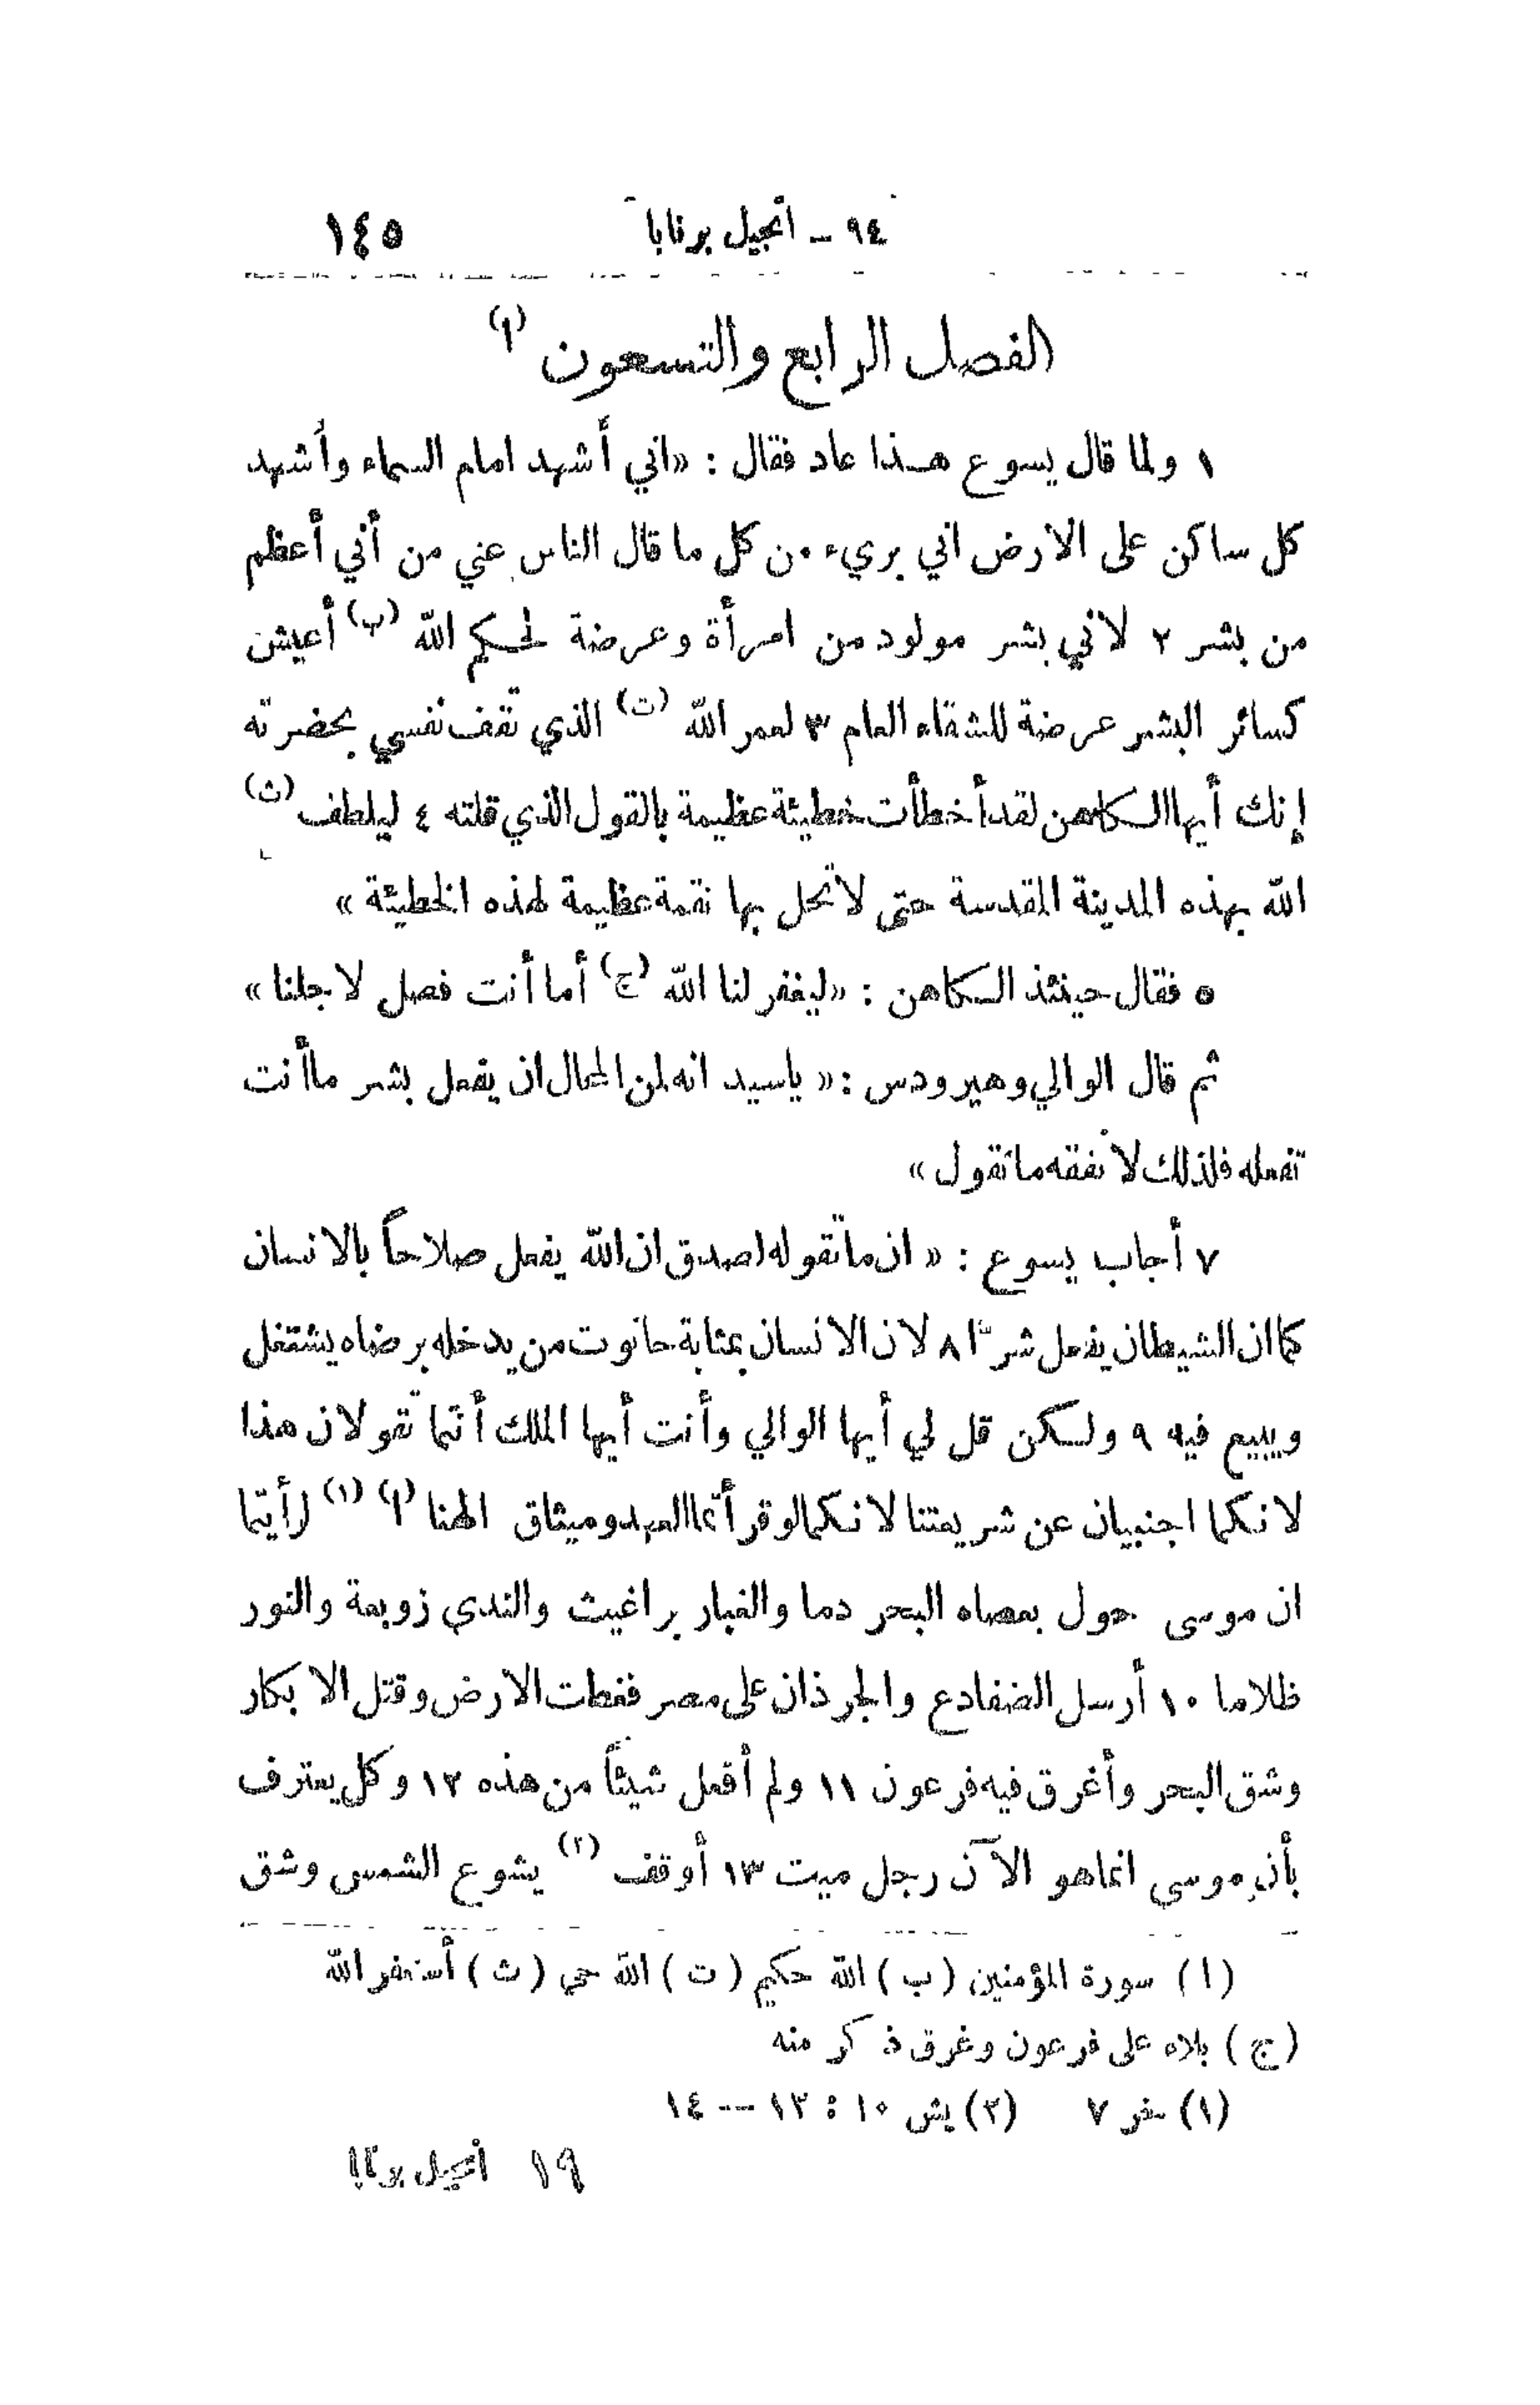 ٩٤ – انجيل برنابا ١٤٥
الفصل الرابع والتسعون (ا)
١ ولما قال يسوع هذا عاد فقال : «اني أشهد امام السماء وأشهد
كل ساكن على الارض اني بريء من كل ما قال الناس عني من أني أعظم
من بشر ٢ لاني بشر مولود من امرأة وعرضة لحكم الله (ب) أعيش
كسائر البشر عرضة للشقاء العام ٣ لعمر الله (ت) الذي تقف نفسي بحضرته
إنك أيها الكاهن لقد أخطأت خطيئة عظيمة بالقول الذي قلته ٤ ليلطف (ث)
الله بهذه المدينة المقدسة حتى لا تحل بها نقمة عظيمة لهذه الخطيئة »
٥ فقال حينئذ الكاهن : «ليغفر لنا الله (ج) أما أنت فصل لاجلنا »
ثم قال الوالي وهيرودس : « ياسيد انه لمن المحال ان يفعل بشر ماأنت
تفعله فلذلك لا نفقه ماتقول »
٧ أجاب يسوع : « ان ما تقوله لصدق ان الله يفعل صلاحاً بالانسان
كما ان الشيطان يفعل شرّا ٨ لان الانسان بمثابة حانوت من يدخله برضاه يشتغل
ويبيع فيه ٩ ولكن قل لي أيها الوالي وأنت أيها الملك أنتما تقولان هذا
لانكما اجنبيان عن شريعتنا لانكما لو قرأتما العهد وميثاق الهنا (ا) (١) لرأيتما
ان موسى حول بعصاه البحر دما والغبار براغيث والندى زوبعة والنور
ظلاما ١٠ أرسل الضفادع والجرذان على مصر فغطت الارض وقتل الابكار
وشق البحر وأغرق فيه فرعون ١١ ولم أفعل شيئاً من هذه ١٢ وكل يعترف
بأن موسى انما هو الآن رجل ميت ١٣ أوقف (٢) يشوع الشمس وشق
(ا) سورة المؤمنين (ب) الله حكيم (ت) الله حي (ث) أستغفر الله
(ج) بلاء على فرعون وغرق ذكر منه
(١) خر ٧ (٢) يش ١٠ : ١٣ -- ١٤
١٩ انجيل برنابا